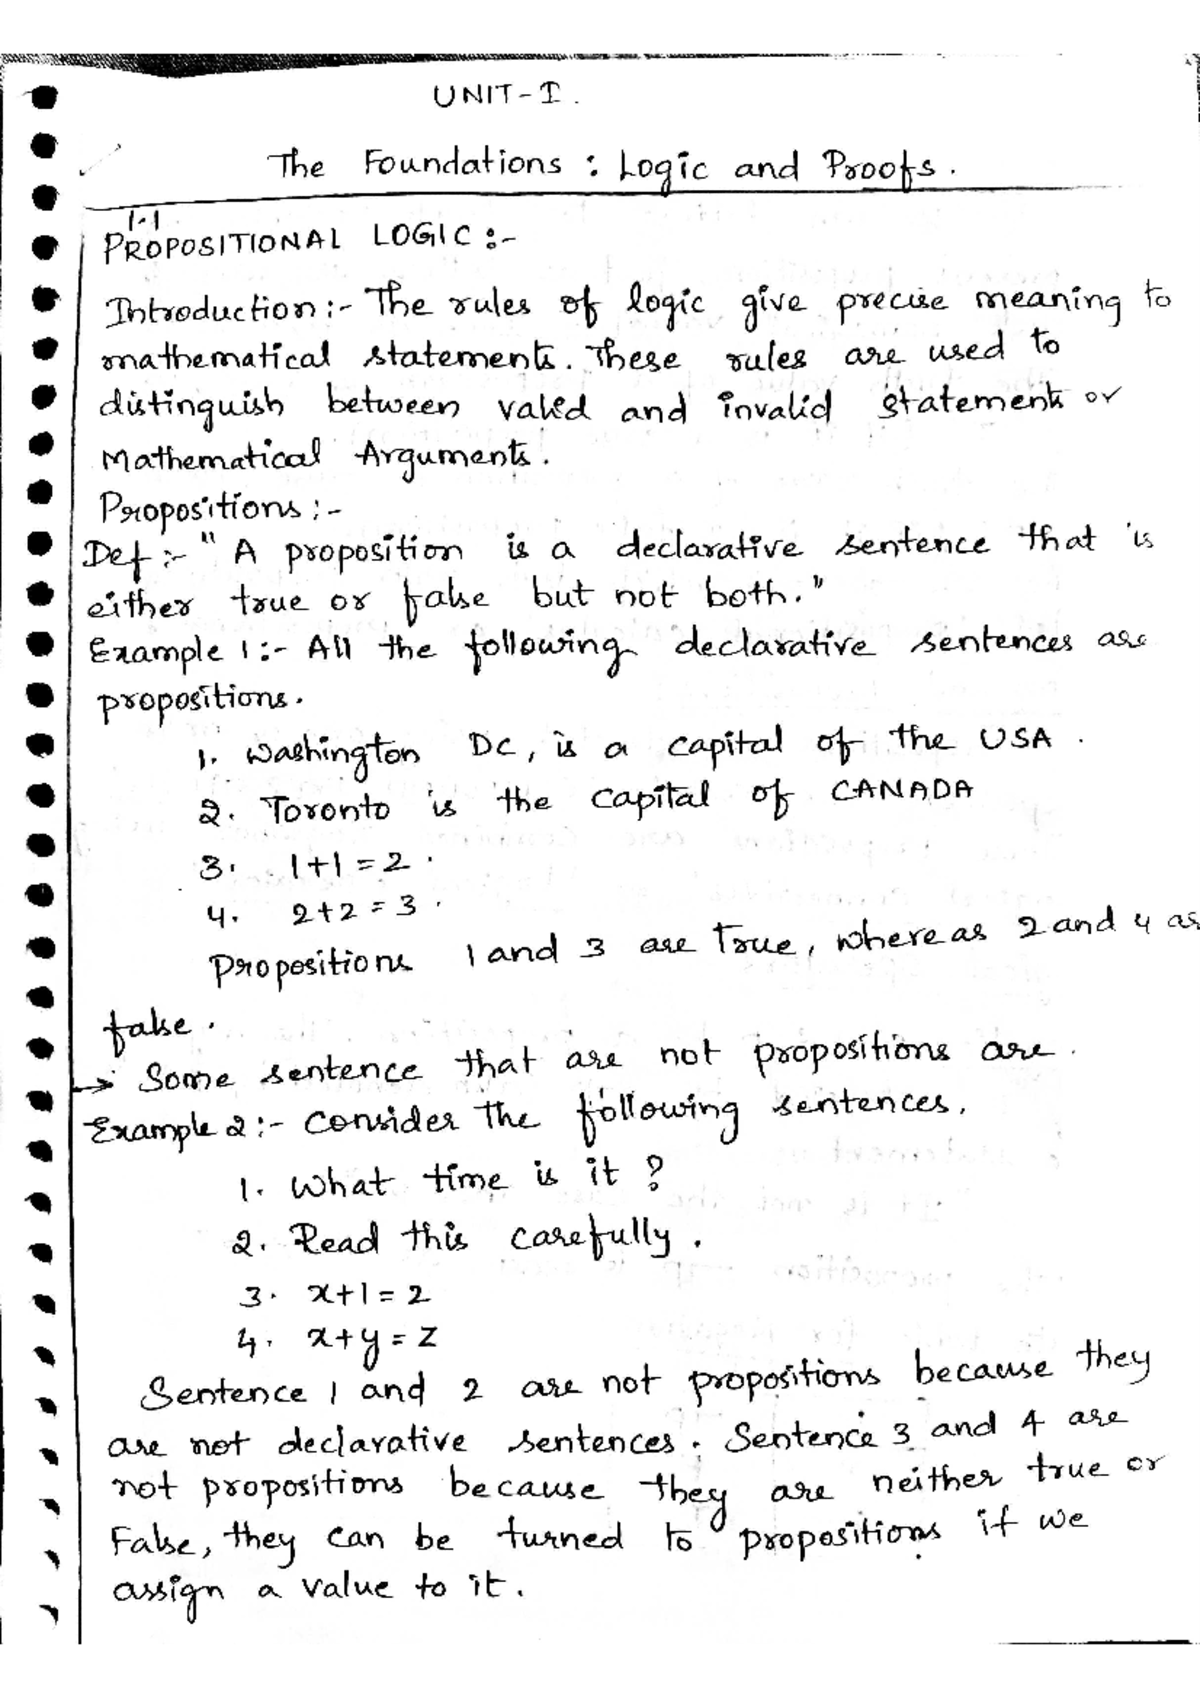 UNIT-I.
The Foundations : Logic and Proofs.
1.1
PROPOSITIONAL LOGIC :-
Introduction :- The rules of logic give precise meaning to
mathematical statements. These rules are used to
distinguish between valid and invalid statements or
Mathematical Arguments.
Propositions :-
Def :- " A proposition is a declarative sentence that is
either true or false but not both."
Example 1 :- All the following declarative sentences are
propositions.
1. Washington DC, is a capital of the USA.
2. Toronto is the capital of CANADA
3. 1+1=2.
4. 2+2=3.
Propositions 1 and 3 are True, where as 2 and 4 as
false.
→ Some sentence that are not propositions are.
Example 2 :- Consider the following sentences.
1. What time is it ?
2. Read this carefully.
3. x+1=2
4. x+y=z
Sentence 1 and 2 are not propositions because they
are not declarative sentences. Sentence 3 and 4 are
not propositions because they are neither true or
False, they can be turned to propositions if we
assign a value to it.